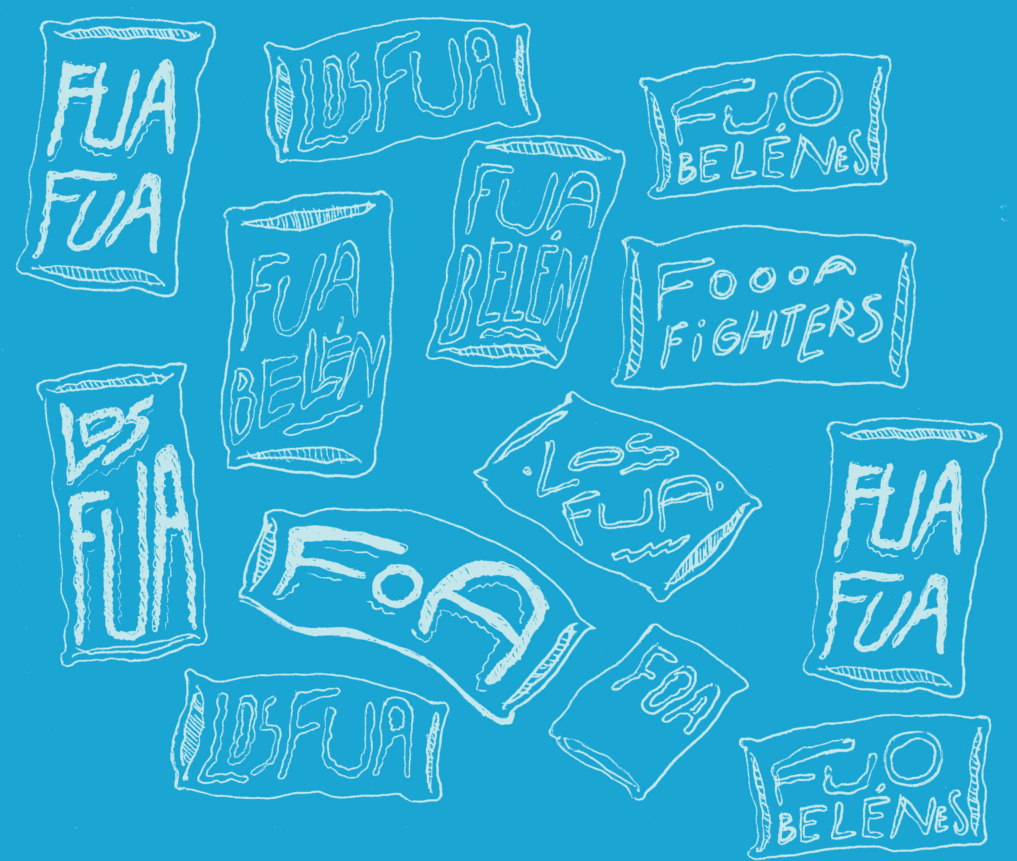 FUA
FUA
LOS FUA
FUO
BELÉNES
FUA
BELÉN
FUA
BELÉN
FOOOA
FiGHTERS
LOS
FUA
·LOS
FUA·
FUA
FUA
FOA
FOA
LOS FUA
FUO
BELÉNES